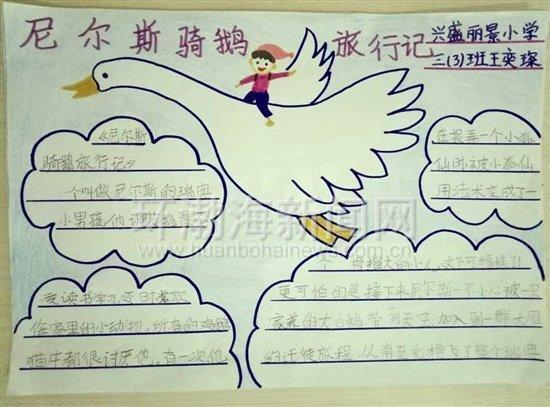 尼尔斯骑鹅旅行记
兴盛丽景小学
三(3)班王奕琛
《尼尔斯
骑鹅旅行记》
一个叫做尼尔斯的瑞典
小男孩,他调皮
爱读书学习,还时常欺
侮家里的小动物,所有的鸡鹅
猫牛都很讨厌他。有一次他
在捉弄一个小狐
仙时被小狐仙
用法术变成了一
个拇指大的小人,这下可惨
更可怕的是接下来尼尔斯一不小心被一只
家养的大白鹅带到天空加入到一群大雁
的迁徙旅程,从南至北
环渤海新闻网
www.huanbohainews.com